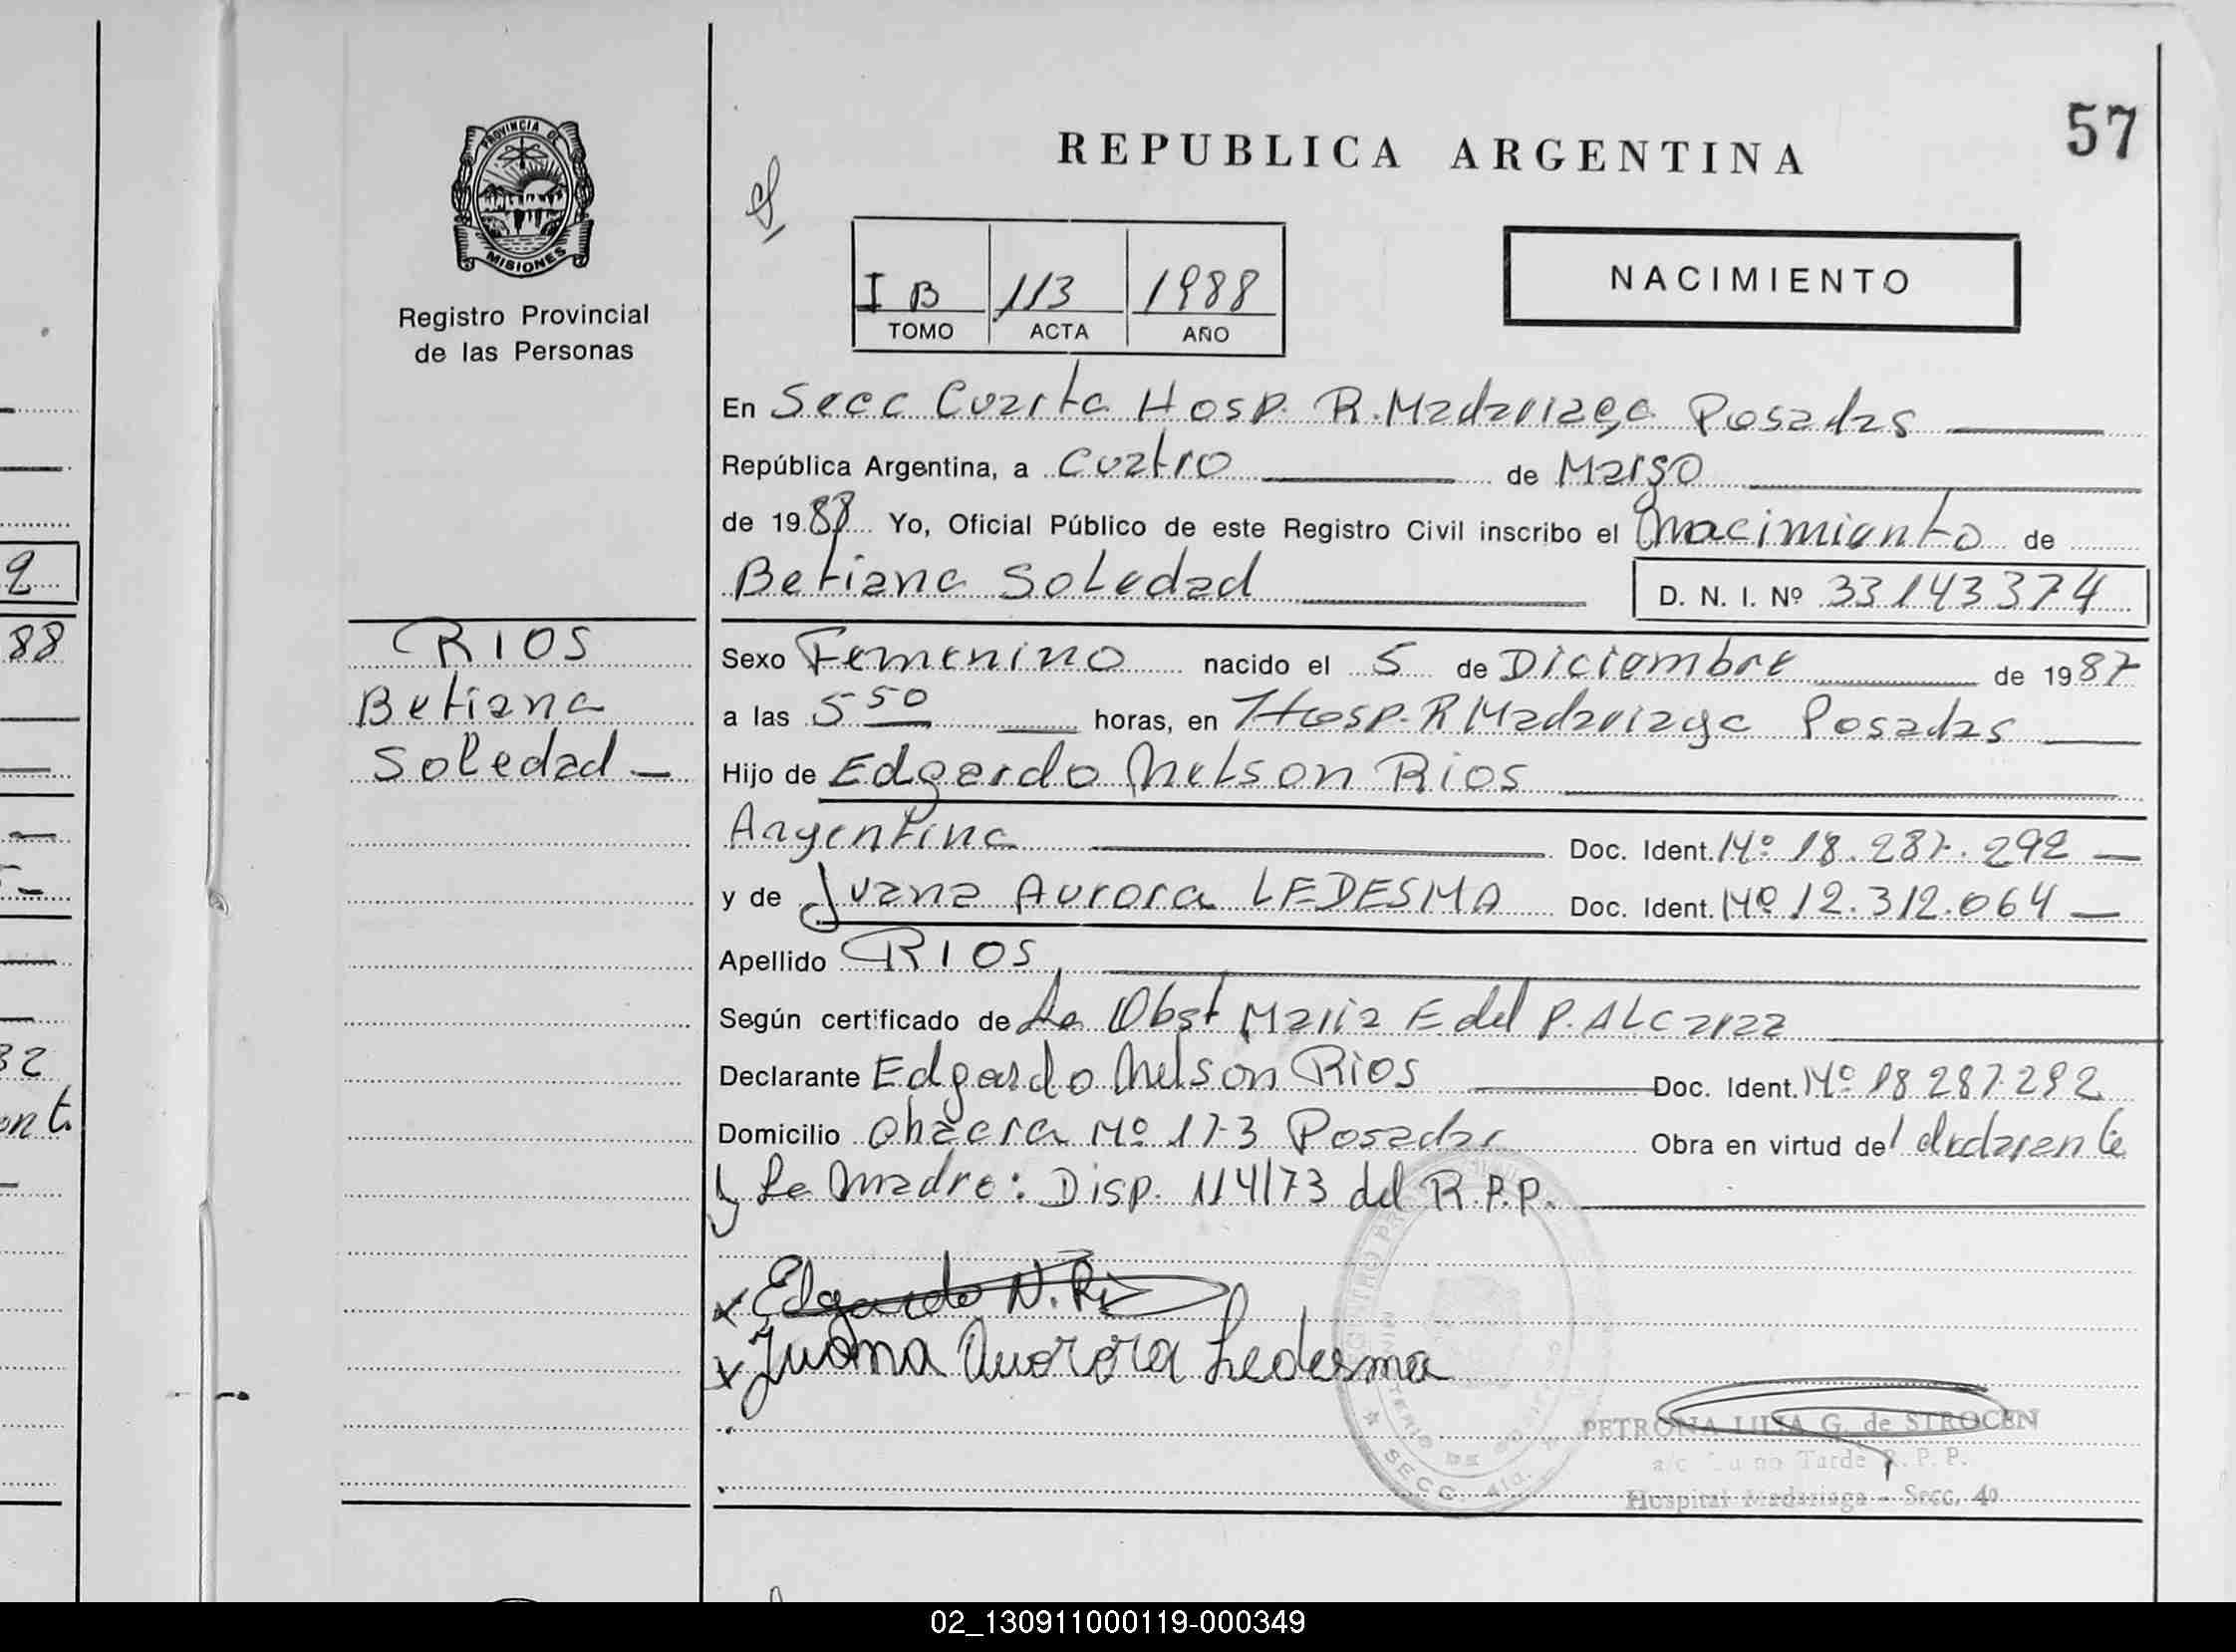 57
REPUBLICA ARGENTINA
PROVINCIA DE
MISIONES
Registro Provincial
de las Personas
I B 113 1988
TOMO ACTA AÑO
NACIMIENTO
En Secc Cuarta Hosp. R. Madariaga Posadas
República Argentina, a Cuatro de Marzo
de 1988 Yo, Oficial Público de este Registro Civil inscribo el Nacimiento de
Betiana Soledad D. N. I. Nº 33143374
RIOS
Betiana
Soledad
Sexo Femenino nacido el 5 de Diciembre de 1987
a las 5 50 horas, en Hosp. R Madariaga Posadas
Hijo de Edgardo Nelson Rios
Argentina Doc. Ident. Nº 18.287.292
y de Juana Aurora LEDESMA Doc. Ident. Nº 12.312.064
Apellido RIOS
Según certificado de La Obst Maria E del P. ALCaraz
Declarante Edgardo Nelson Rios Doc. Ident. Nº 18 287.292
Domicilio Nº 173 Posadas Obra en virtud del declarante
y La madre: Disp. 114/73 del R.P.P.
Edgardo N. Rios
Juana Aurora Ledesma
PETRONA LILIA G. de STROCEN
a/c Turno Tarde R. P. P.
Hospital Madariaga - Secc. 4º
2
88
32
ent.
02_130911000119-000349